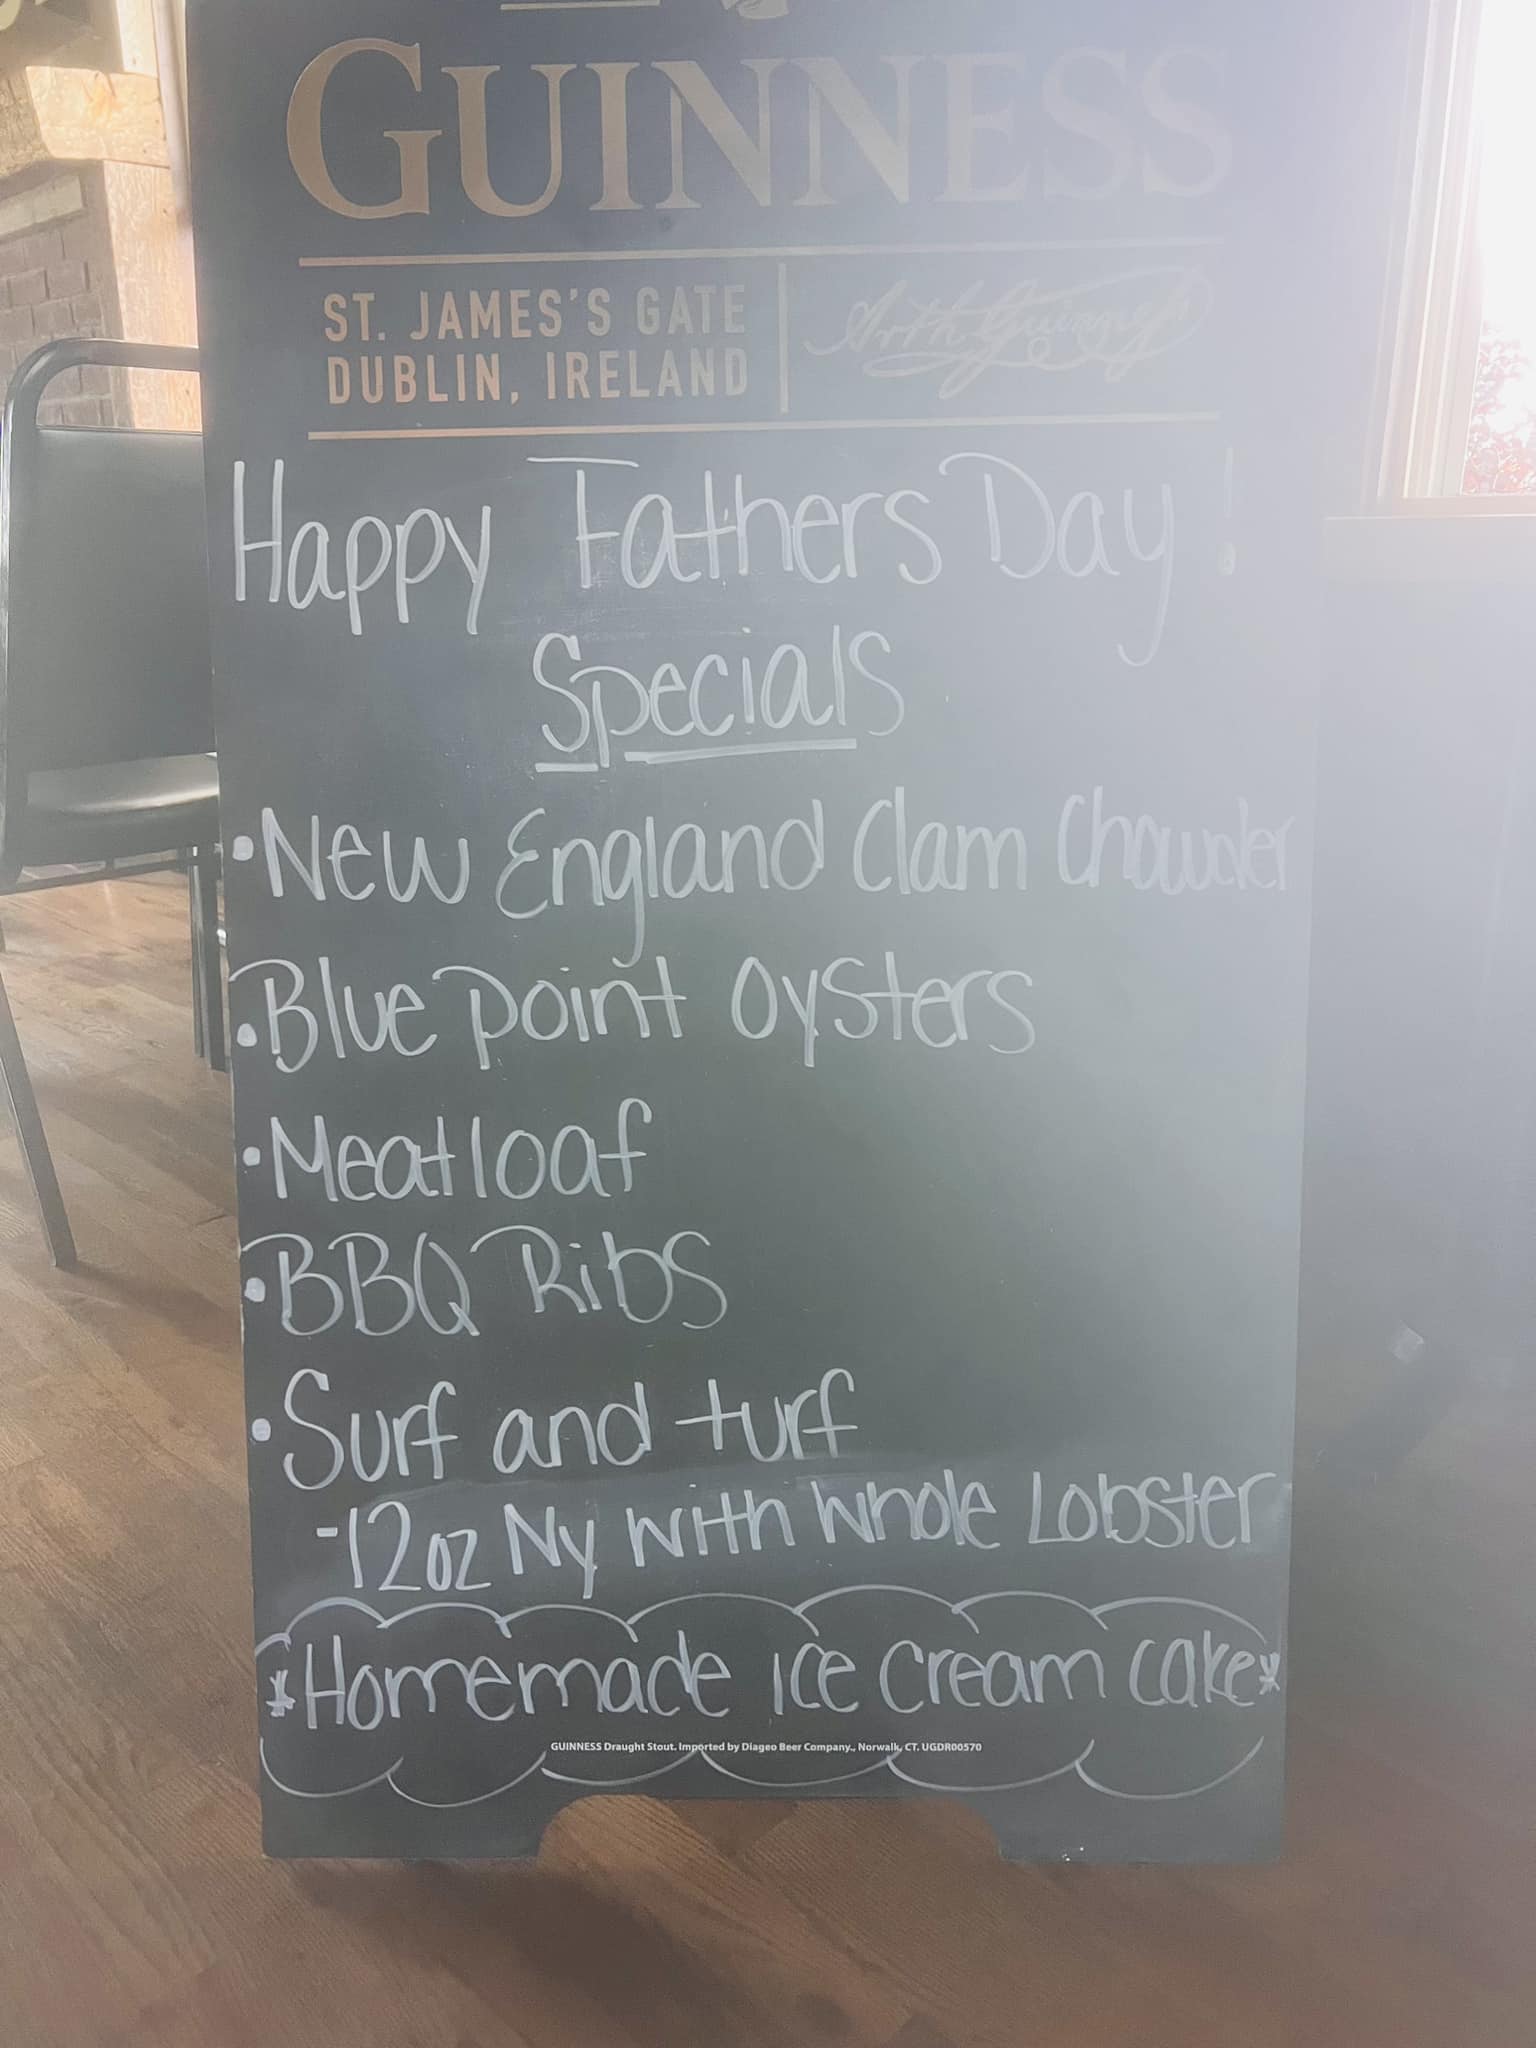 GUINNESS
ST. JAMES'S GATE
DUBLIN, IRELAND
Arth Guinness
Happy Fathers Day!
Specials
•New England Clam Chowder
•Blue point oysters
•Meatloaf
•BBQ Ribs
•Surf and turf
-12oz Ny with whole Lobster
*Homemade ice cream cake*
GUINNESS Draught Stout. Imported by Diageo Beer Company., Norwalk, CT. UGDR00570